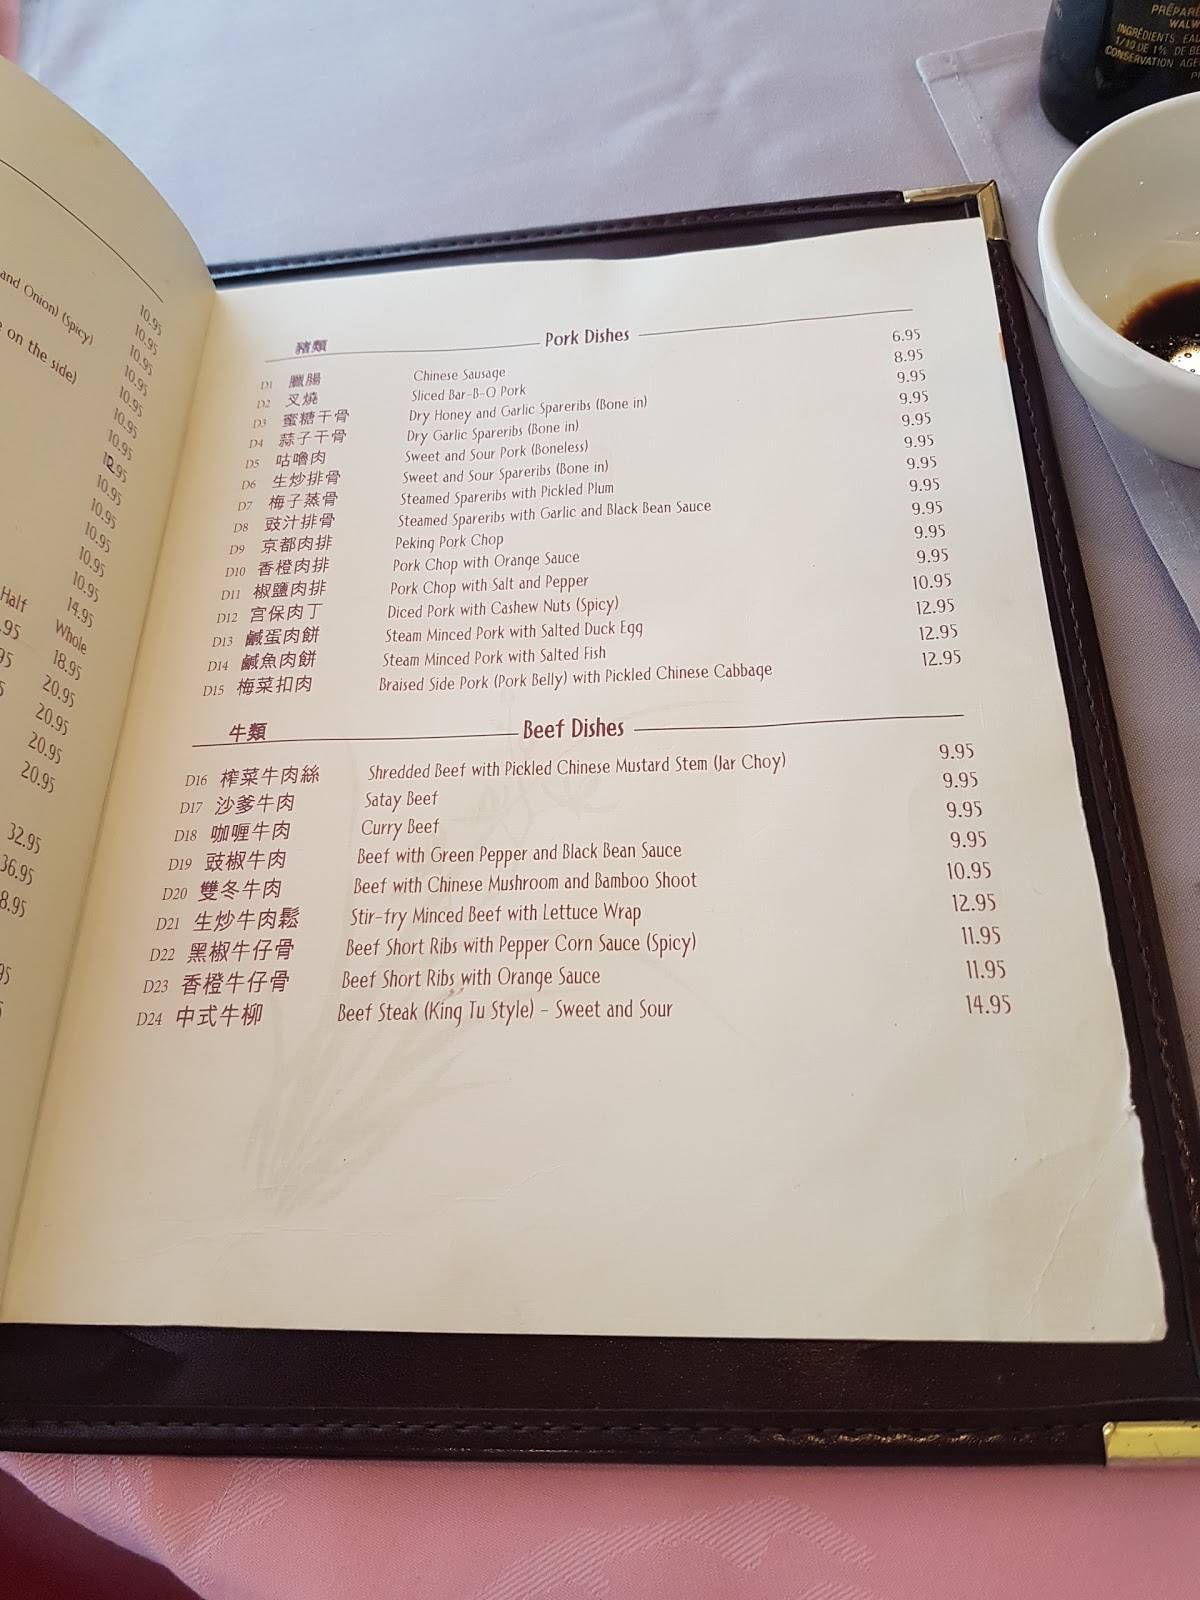 PRÉPARÉ
WALW
INGRÉDIENTS EAU
1/10 DE 1% DE BE
CONSERVATION AGE
and Onion) (Spicy)
on the side)
10.95
10.95
10.95
10.95
10.95
10.95
10.95
12.95
10.95
10.95
10.95
10.95
10.95
14.95
Half Whole
.95 18.95
95 20.95
20.95
20.95
20.95
32.95
36.95
8.95
95
豬類 Pork Dishes
D1 臘腸 Chinese Sausage 6.95
D2 叉燒 Sliced Bar-B-Q Pork 8.95
D3 蜜糖干骨 Dry Honey and Garlic Spareribs (Bone in) 9.95
D4 蒜子干骨 Dry Garlic Spareribs (Bone in) 9.95
D5 咕嚕肉 Sweet and Sour Pork (Boneless) 9.95
D6 生炒排骨 Sweet and Sour Spareribs (Bone in) 9.95
D7 梅子蒸骨 Steamed Spareribs with Pickled Plum 9.95
D8 豉汁排骨 Steamed Spareribs with Garlic and Black Bean Sauce 9.95
D9 京都肉排 Peking Pork Chop 9.95
D10 香橙肉排 Pork Chop with Orange Sauce 9.95
D11 椒鹽肉排 Pork Chop with Salt and Pepper 9.95
D12 宮保肉丁 Diced Pork with Cashew Nuts (Spicy) 10.95
D13 鹹蛋肉餅 Steam Minced Pork with Salted Duck Egg 12.95
D14 鹹魚肉餅 Steam Minced Pork with Salted Fish 12.95
D15 梅菜扣肉 Braised Side Pork (Pork Belly) with Pickled Chinese Cabbage 12.95
牛類 Beef Dishes
D16 榨菜牛肉絲 Shredded Beef with Pickled Chinese Mustard Stem (Jar Choy) 9.95
D17 沙爹牛肉 Satay Beef 9.95
D18 咖喱牛肉 Curry Beef 9.95
D19 豉椒牛肉 Beef with Green Pepper and Black Bean Sauce 9.95
D20 雙冬牛肉 Beef with Chinese Mushroom and Bamboo Shoot 10.95
D21 生炒牛肉鬆 Stir-fry Minced Beef with Lettuce Wrap 12.95
D22 黑椒牛仔骨 Beef Short Ribs with Pepper Corn Sauce (Spicy) 11.95
D23 香橙牛仔骨 Beef Short Ribs with Orange Sauce 11.95
D24 中式牛柳 Beef Steak (King Tu Style) - Sweet and Sour 14.95